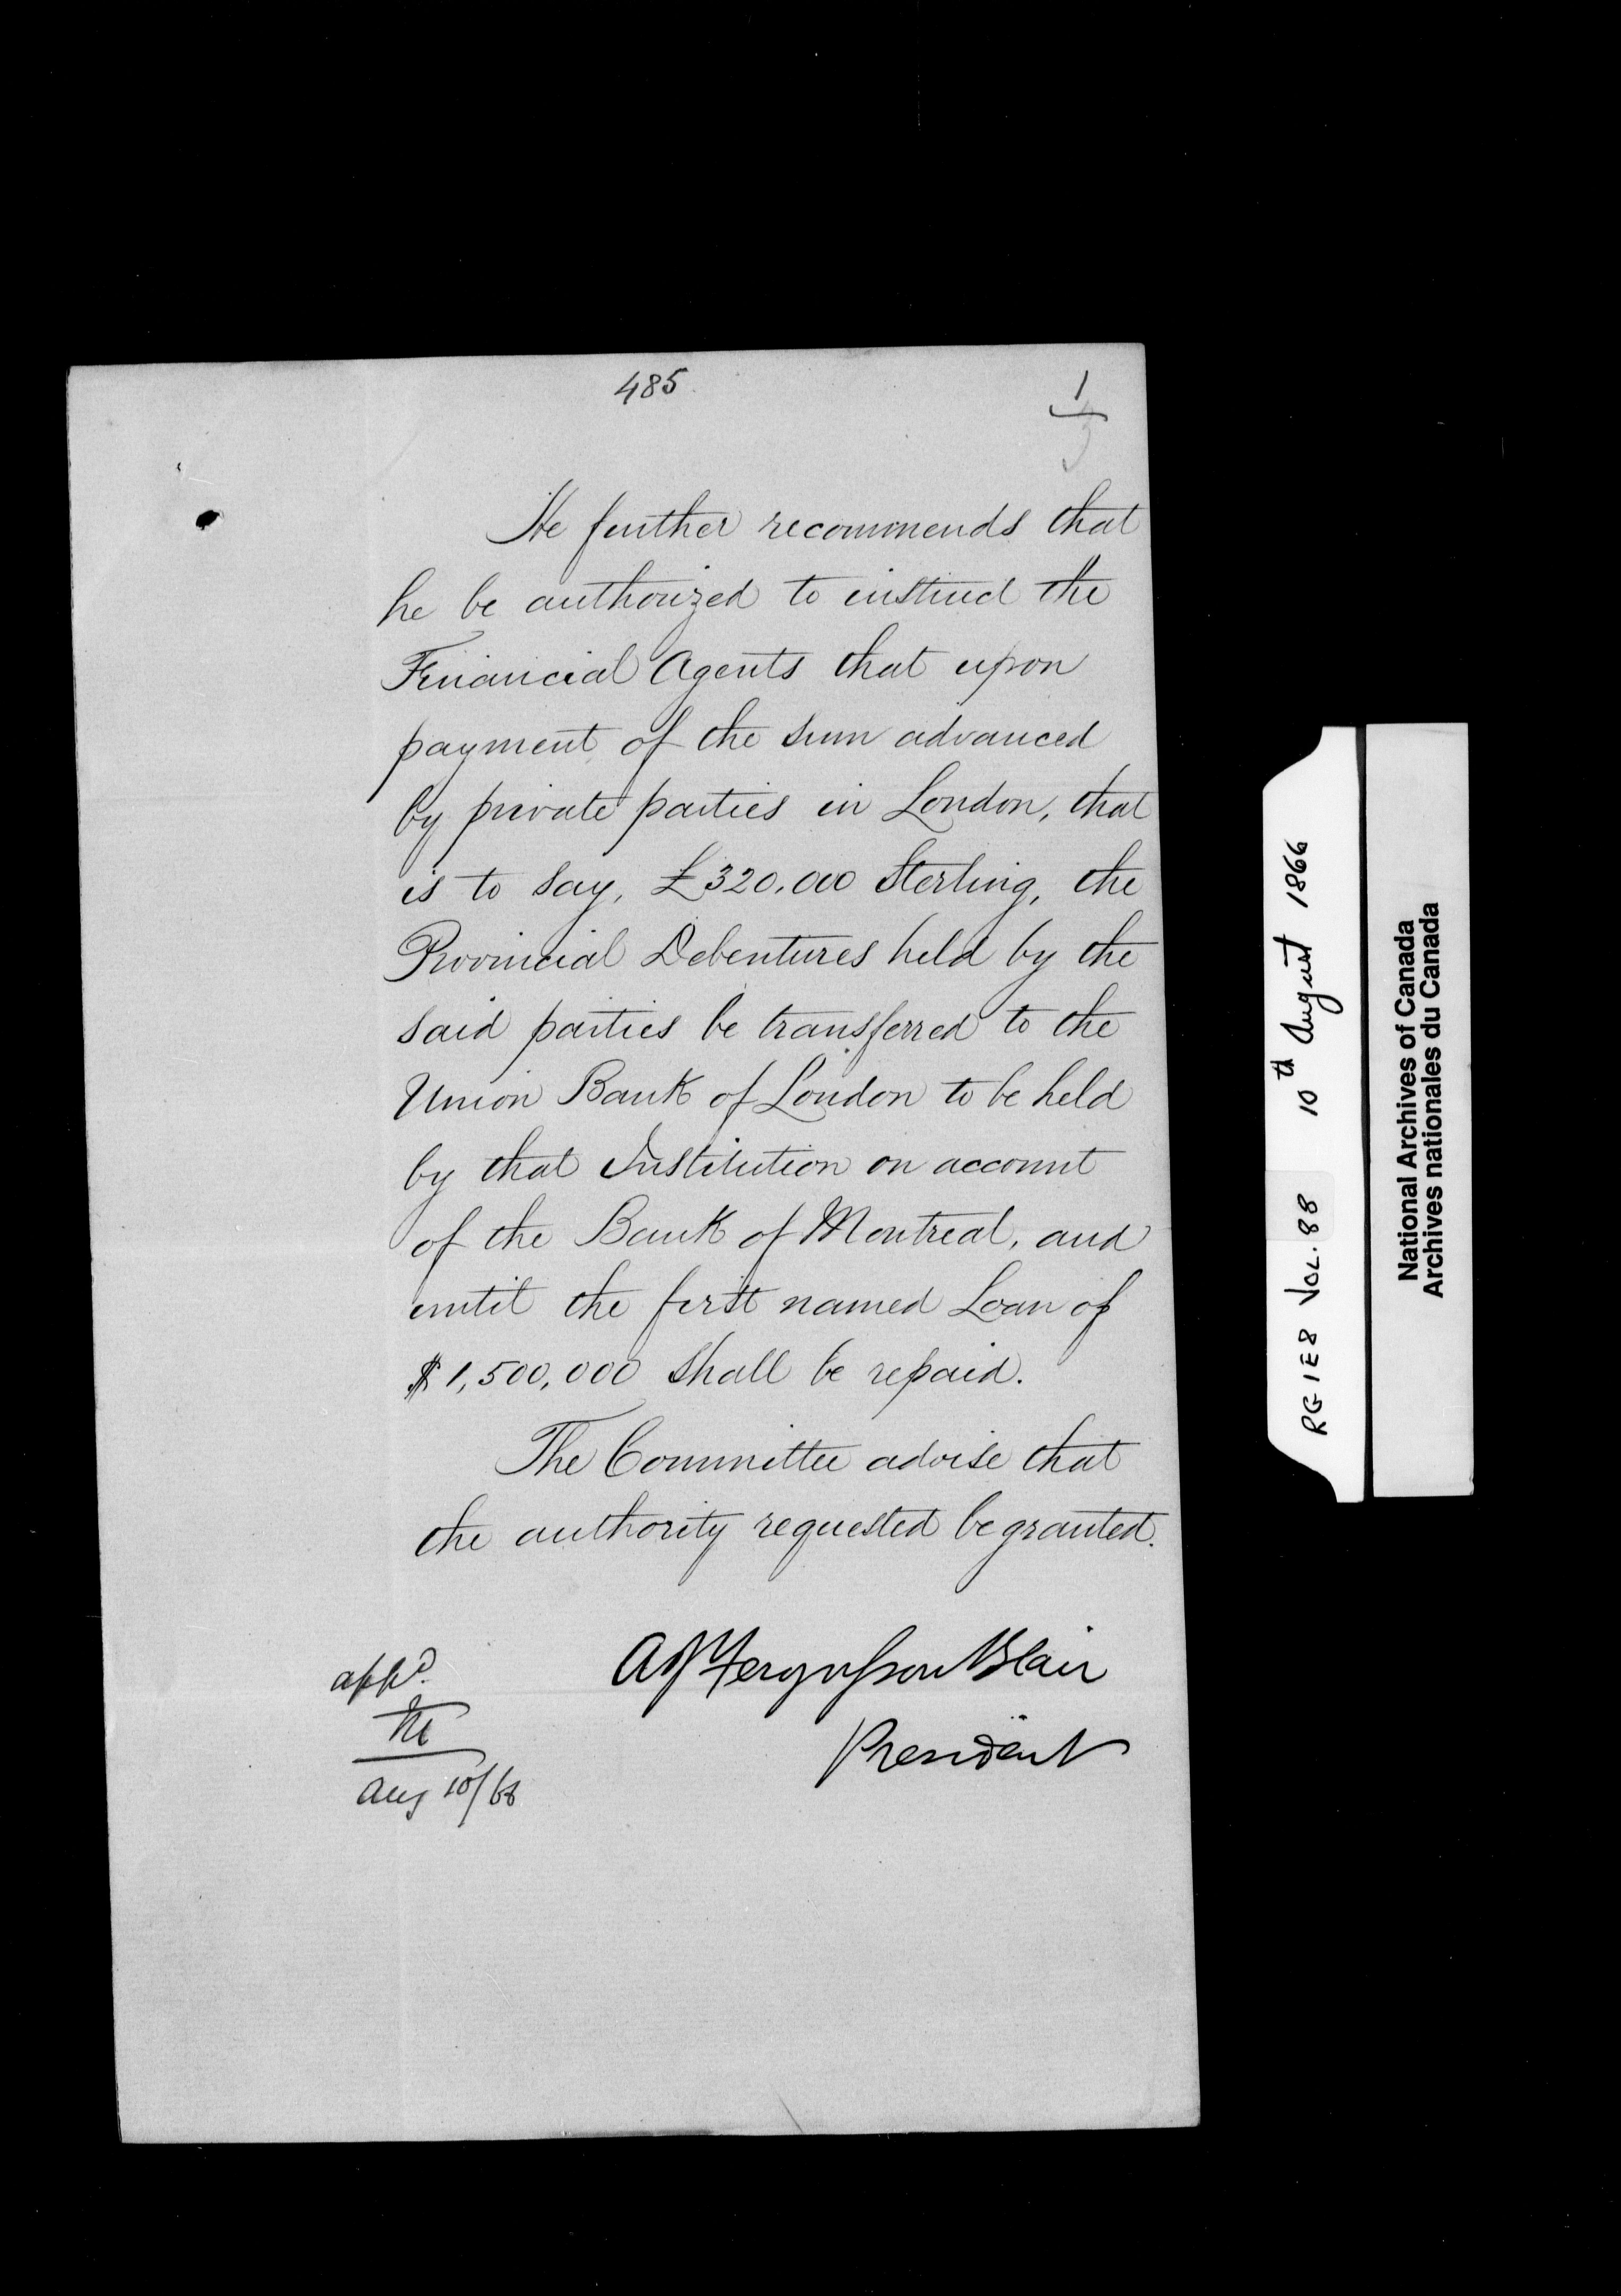 485
1
He further recommends that
he be authorized to instruct the
Financial Agents that upon
payment of the sum advanced
by private parties in London, that
is to say, £320,000 Sterling, the
Provincial Debentures held by the
said parties be transferred to the
Union Bank of London to be held
by that Institution on account
of the Bank of Montreal, and
until the first named Loan of
$1,500,000 shall be repaid.
The Committee advise that
the authority requested be granted.
A J Fergusson Blair
President
appd.
Aug 10/66
RG 1 E 8 VOL. 88 10th August 1866
National Archives of Canada
Archives nationales du Canada